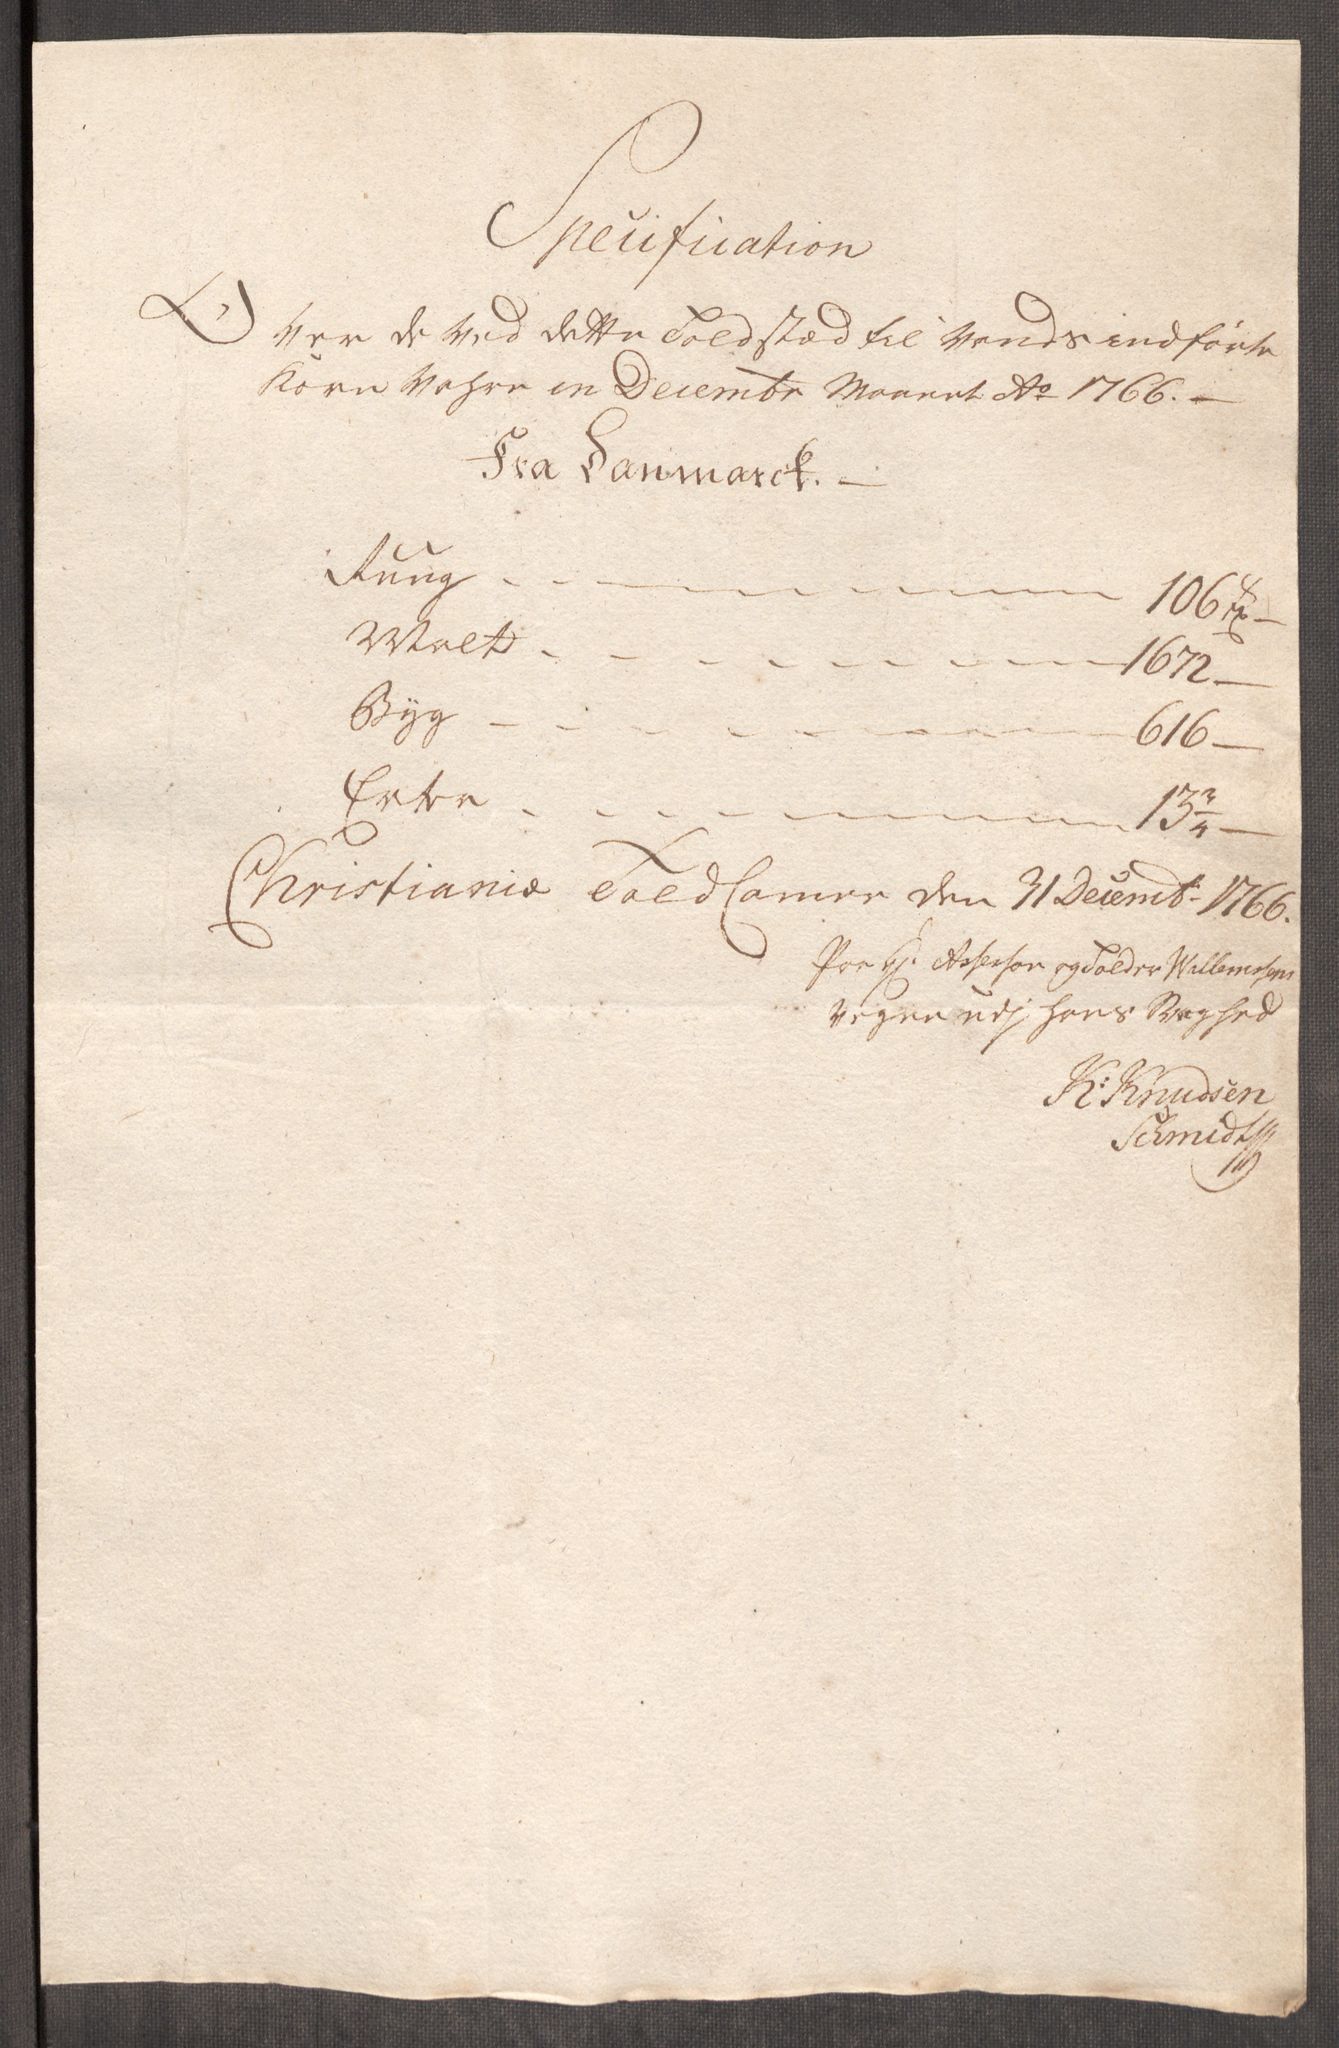 Specification
Over de ved dette Toldstæd til Vands indførte
Korn Vahre in Decembr Maanet Ao 1766.
Fra Danmarck.
Ruug 106
Malt 1672
Byg 616
Erter 13 3/4
Christianiæ Told Camer den 31 Decembr 1766.
Paa Hr. Assessor og Tolder Willemsens
Vegne udj hans Svaghed
K: Knudsen
Schmidt